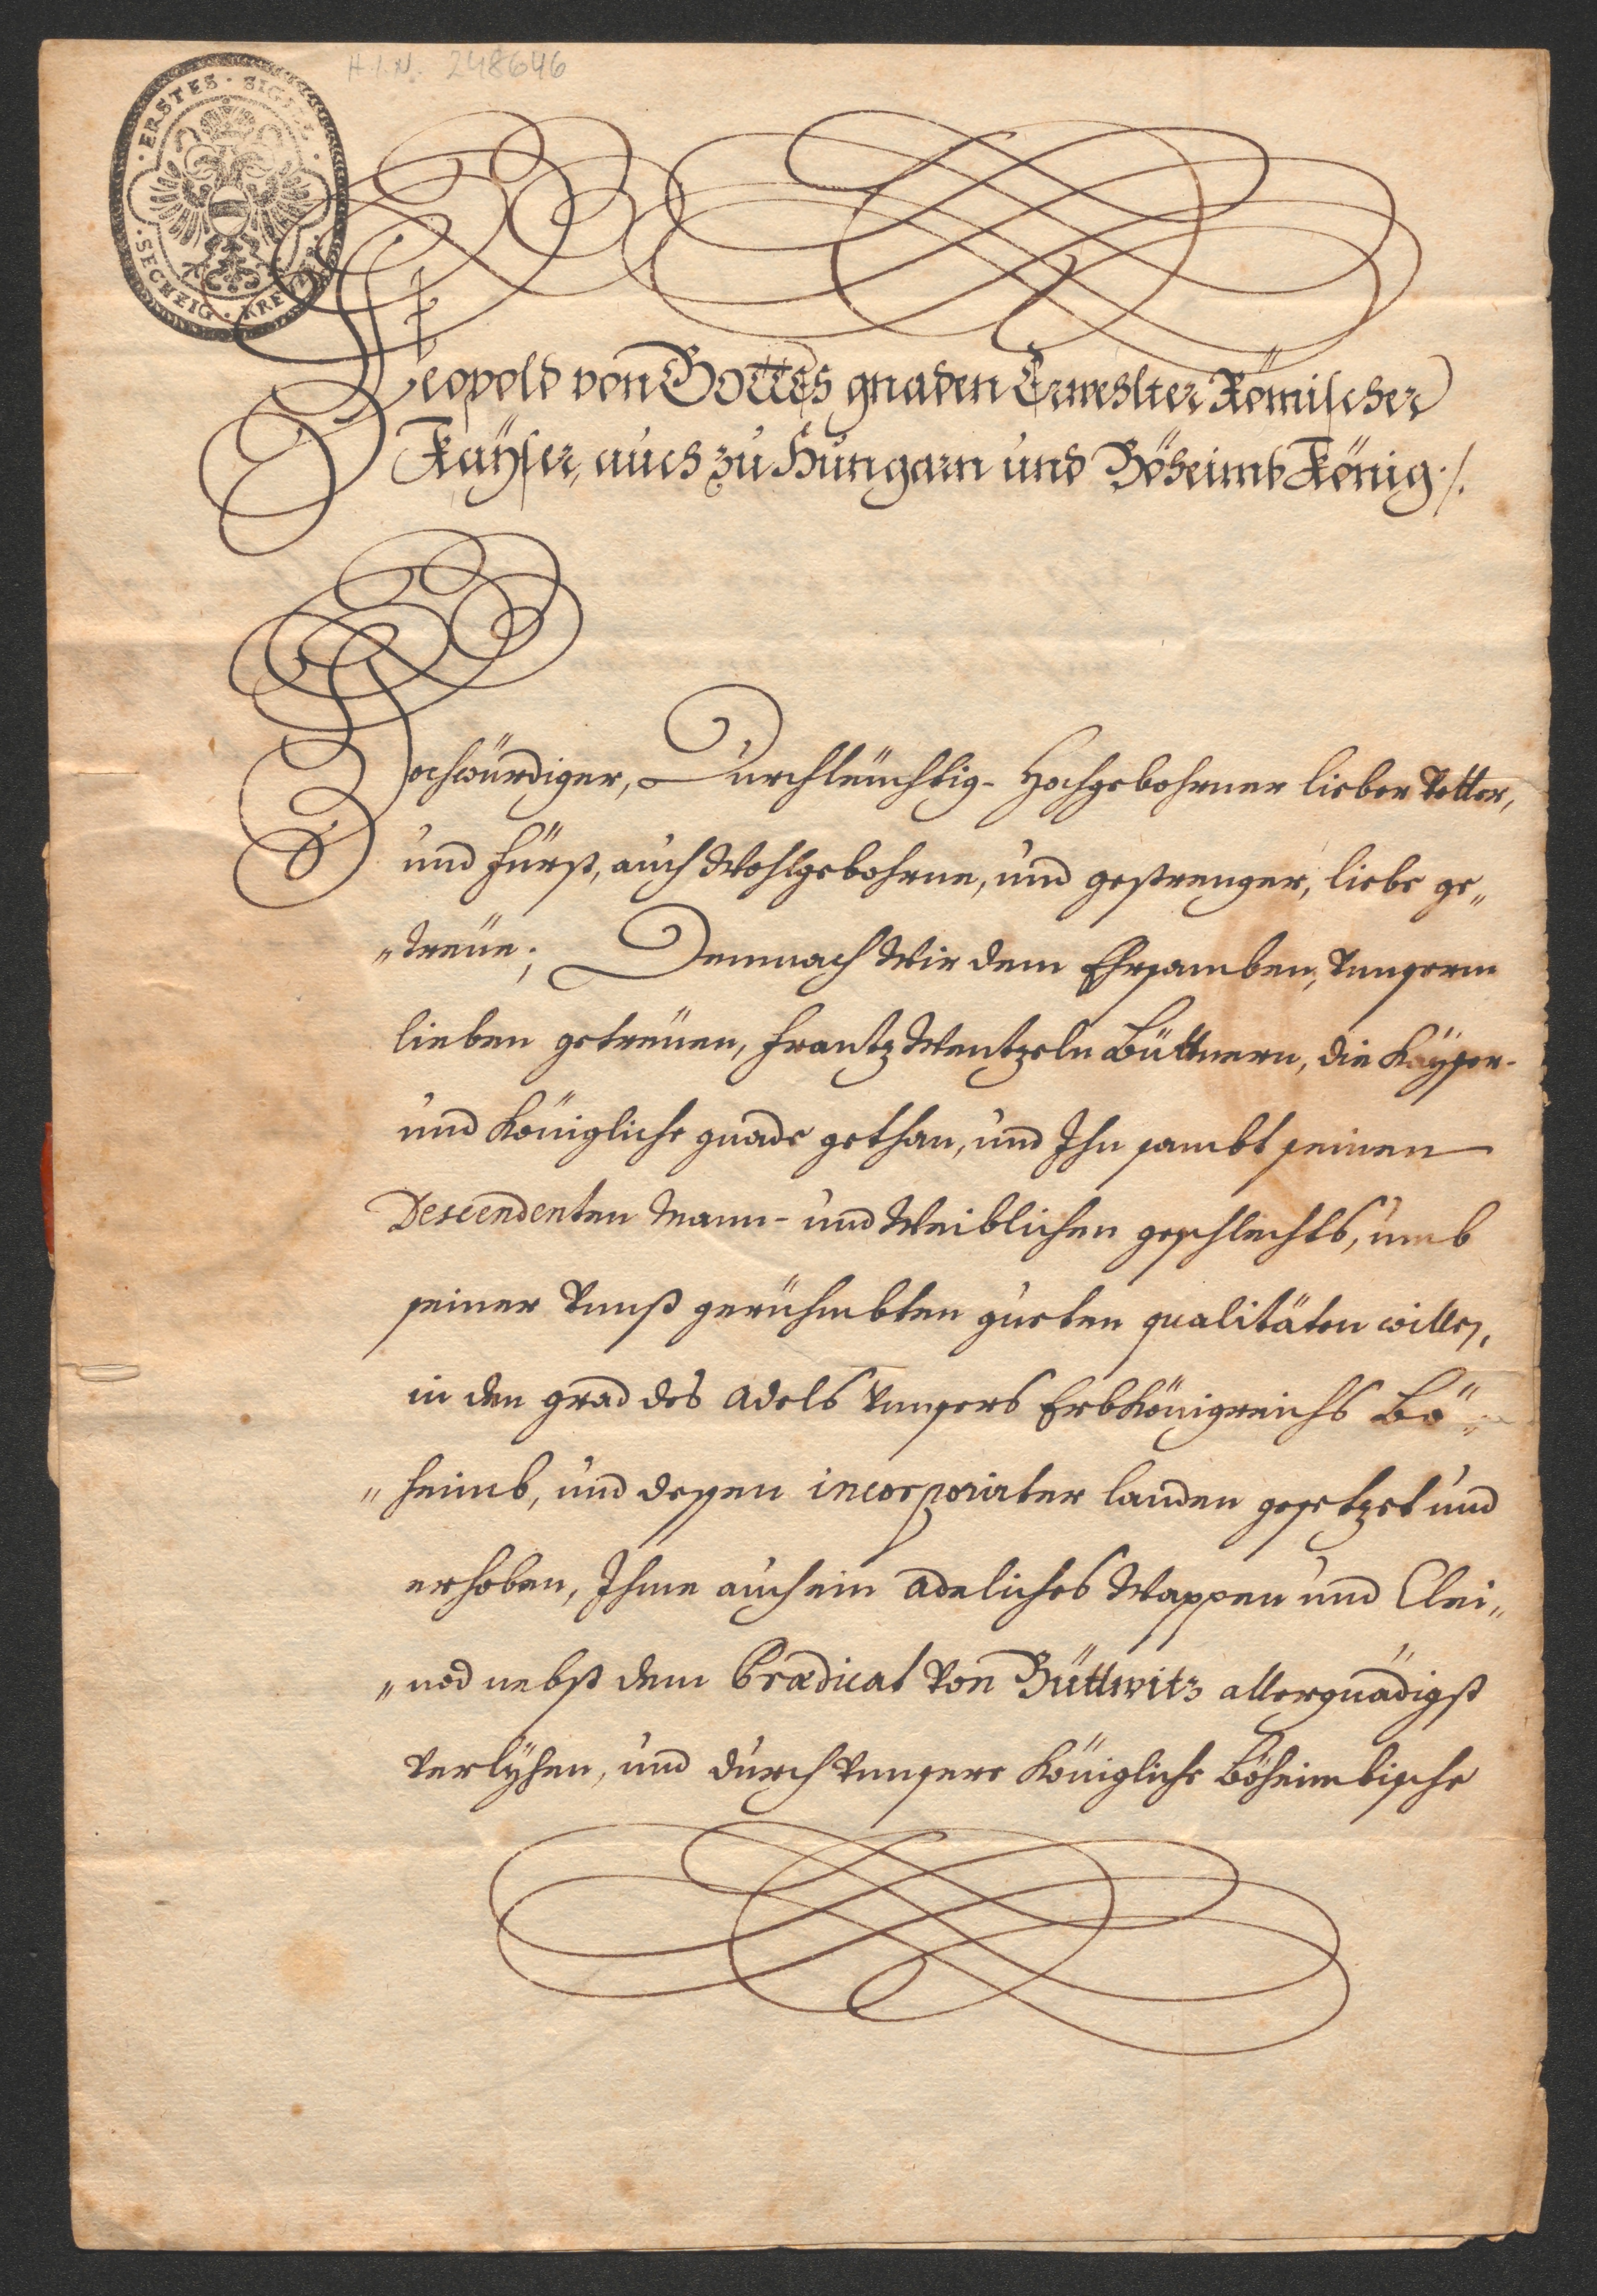 H.I.N. 248646
· ERSTES · SIGILL ·
· SECHZIG · KREUTZER
Leopold von Gottes gnaden Erwehlter Römischer
Kaÿser, auch zu Hungarn und Böheimb König ./.
Hochwürdiger, Durchleüchtig- Hochgebohrner lieber Vetter,
und Fürst, auch Wohlgebohrne, und gestrenger, liebe ge„
„treüe; Demnach Wir dem Ehrsamben, Vnnserm
lieben getreüen, Frantz Wentzeln Büttnern, die Kaÿser-
und Königliche gnade gethan, und Ihn sambt seinen
Descendenten Mann- und Weiblichen geschlechts, umb
seiner Vnnß gerühmbten gueten qualitäten willen,
in den grad des Adels Vnnsers ErbKönigreichs Bö„
„heimb, und dessen incorporirter landen gesetzet und
erhoben, Ihme auch ein Adeliches Wappen und Clei„
„nod nebst dem Prædicat von Büttwitz allergnädigst
verlÿhen, und durch Vnnsere Königliche Böheimbische